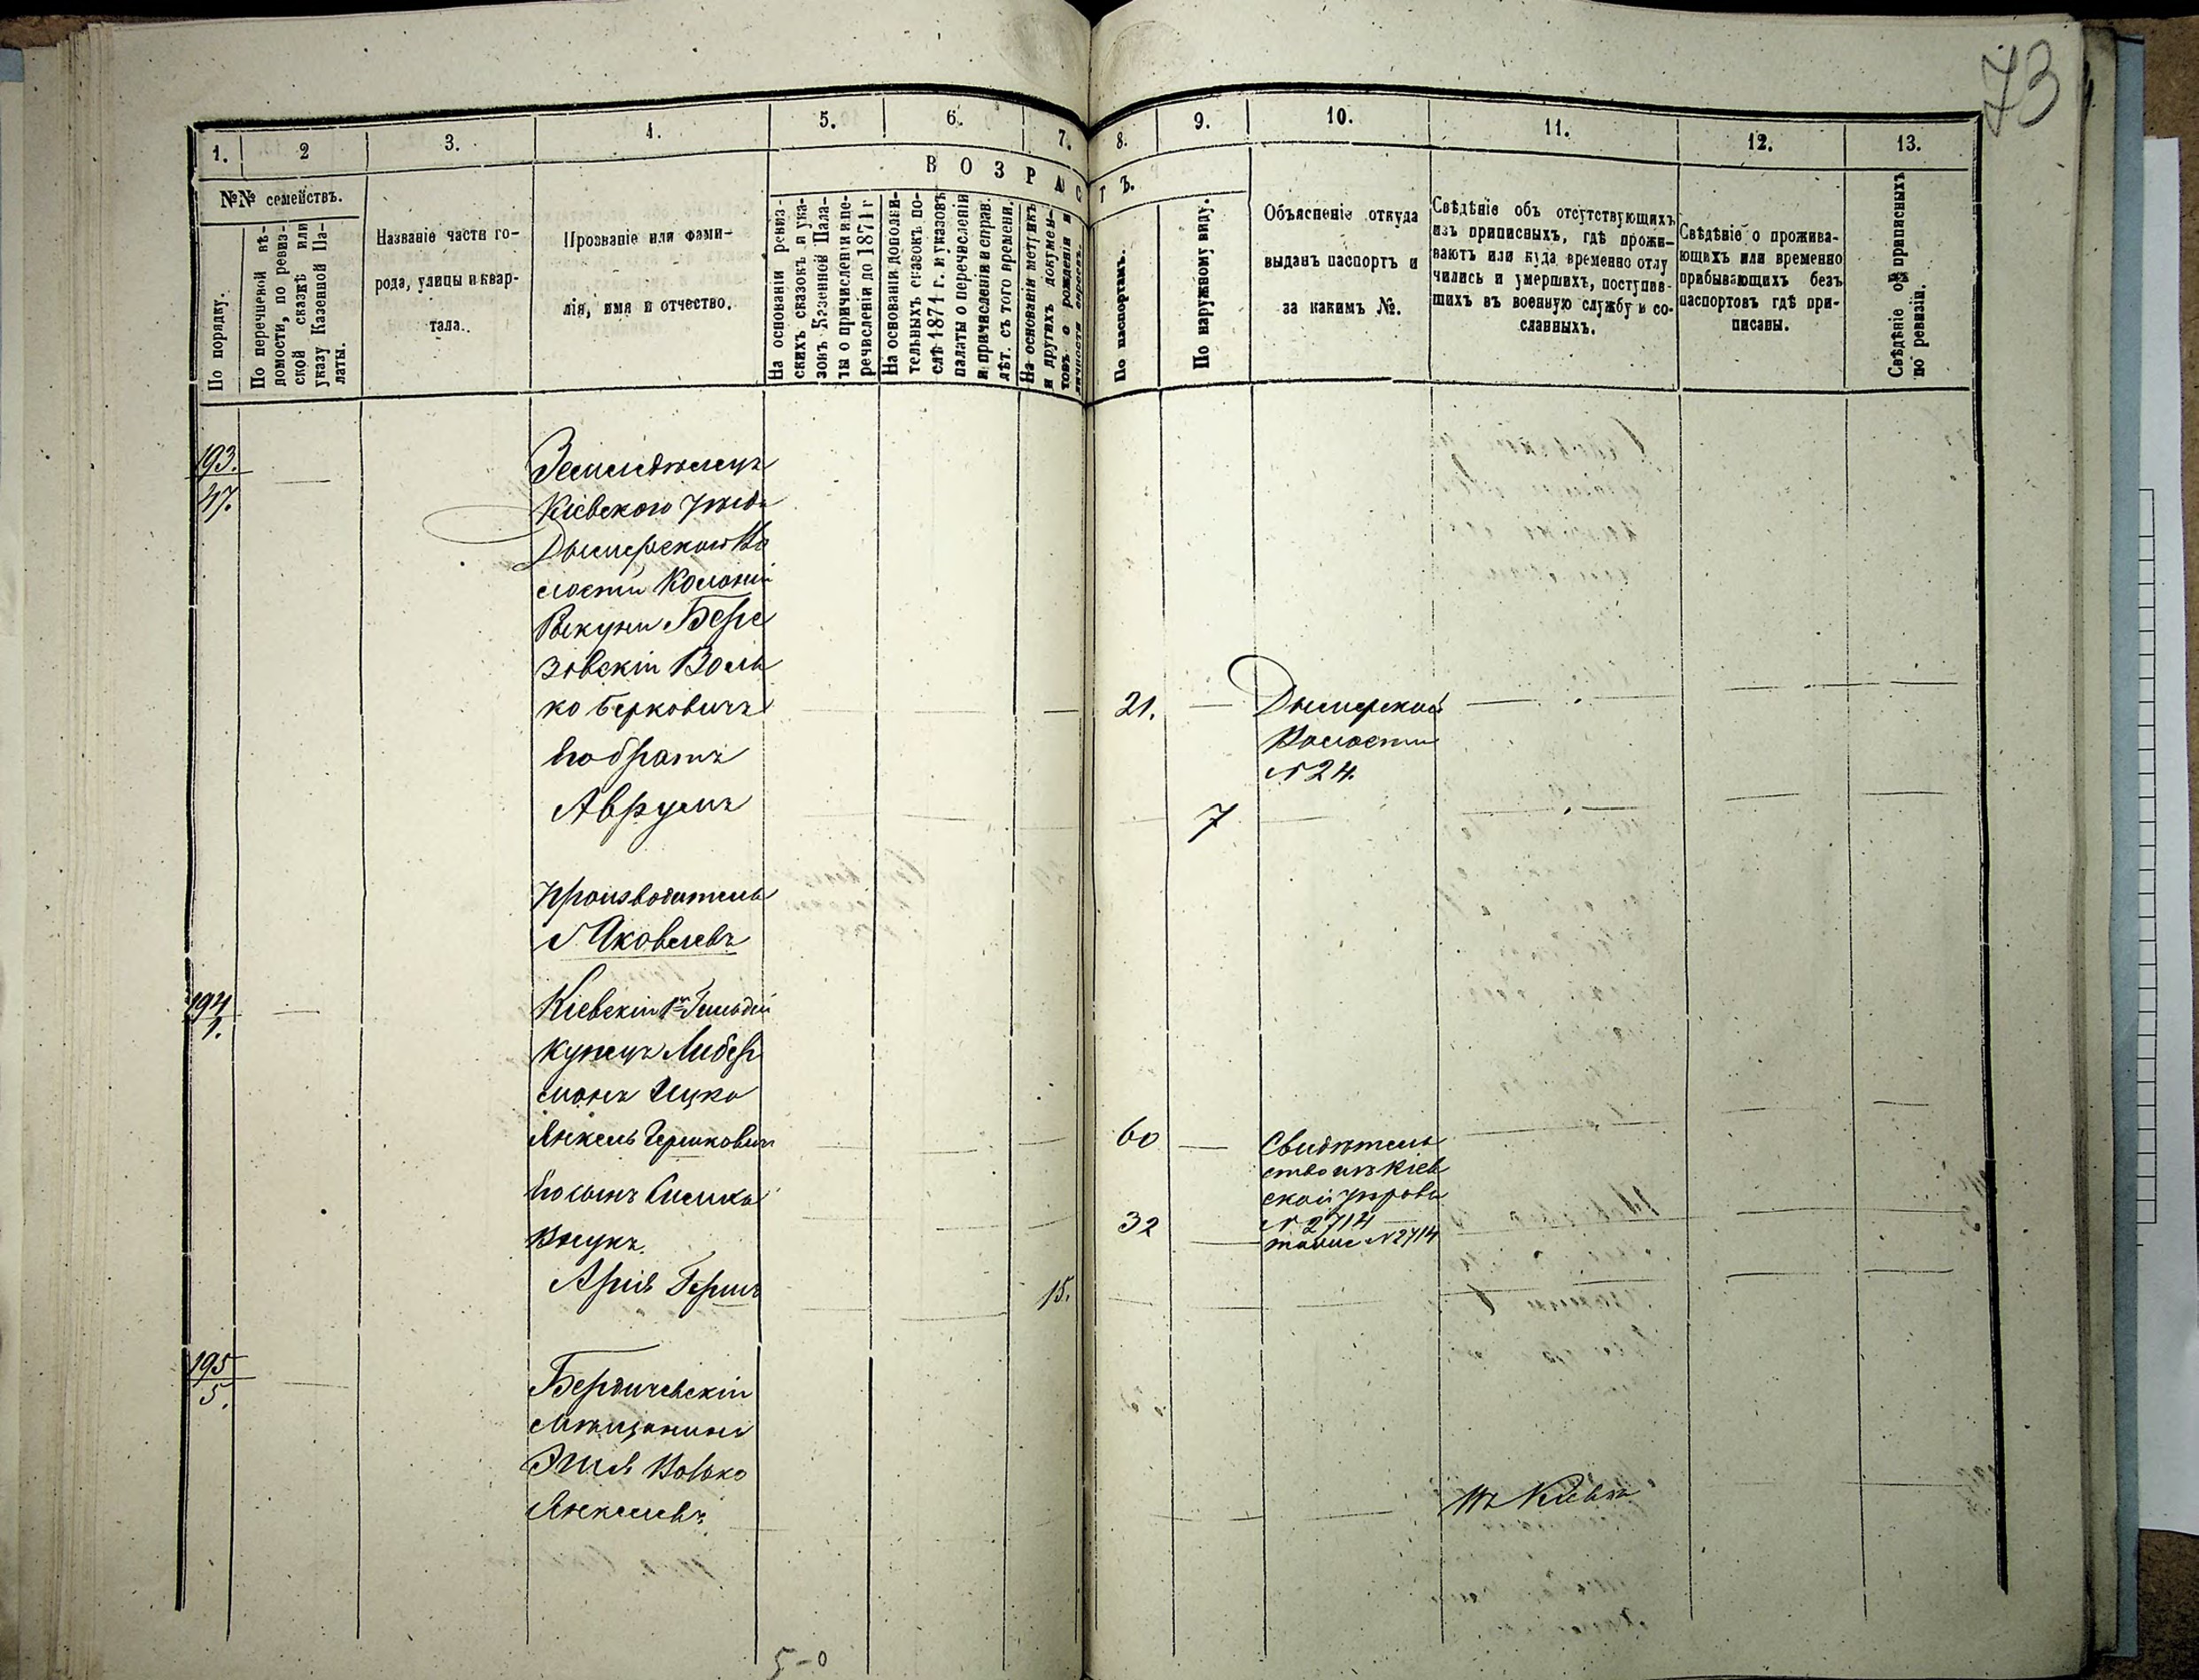 73
1.
2
3.
4.
5.
6.
7.
8.
9.
10.
11.
12.
13.
ВОЗРАСТЪ.
№№ семействъ.
По порядку.
По перечневой вѣ-
домости, по ревиз-
ской сказкѣ или
указу Казенной Па-
латы.
Названіе части го-
рода, улицы и квар-
тала.
Прозваніе или фами-
лія, имя и отчество.
На основаніи ревиз-
скихъ сказокъ и ука-
зовъ Казенной Пала-
ты о причисленіи и пе-
речисленіи до 1871 г
На основаніи дополни-
тельныхъ сказокъ по-
слѣ 1871 г. и указовъ
палаты о перечисленіи
и причисленіи и справ.
лѣт. съ того времени.
На основаніи метрикъ
и другихъ докумен-
товъ о рожденіи и
личности евреевъ.
По паспортамъ.
По наружному виду.
Объясненіе откуда
выданъ паспортъ и
за какимъ №.
Свѣдѣніе объ отсутствующихъ
изъ приписныхъ, гдѣ прожи-
ваютъ или куда временно отлу
чились и умершихъ, поступив-
шихъ въ военную службу и со-
сланныхъ.
Свѣдѣніе о прожива-
ющихъ или временно
прибывающихъ безъ
паспортовъ гдѣ при-
писаны.
Свѣдѣніе о приписныхъ
по ревизіи.
193.
47.
Земледѣлецъ
Кіевскаго уѣзда
Дымерской Во
лости Колоніи
Рыкуни Бере
зовскій Воль
ко Берковичъ
21.
Дымерской
Волости
N 24.
Его братъ
Аврумъ
7
Производитель
Яковлевъ
194
1.
Кіевскій 1й Гильдіи
купецъ Либер
манъ Ицко
Янкель Гершковичъ
60
Свидѣтель
ство изъ Кіев
ской управы
N 2714
Его сынъ Симха
32
тоже N 2714
Внукъ
Арія Гершъ
15.
195
5.
Бердичевскій
мѣщанинъ
Волько
Янкелевъ
Въ Кіевѣ
5-0